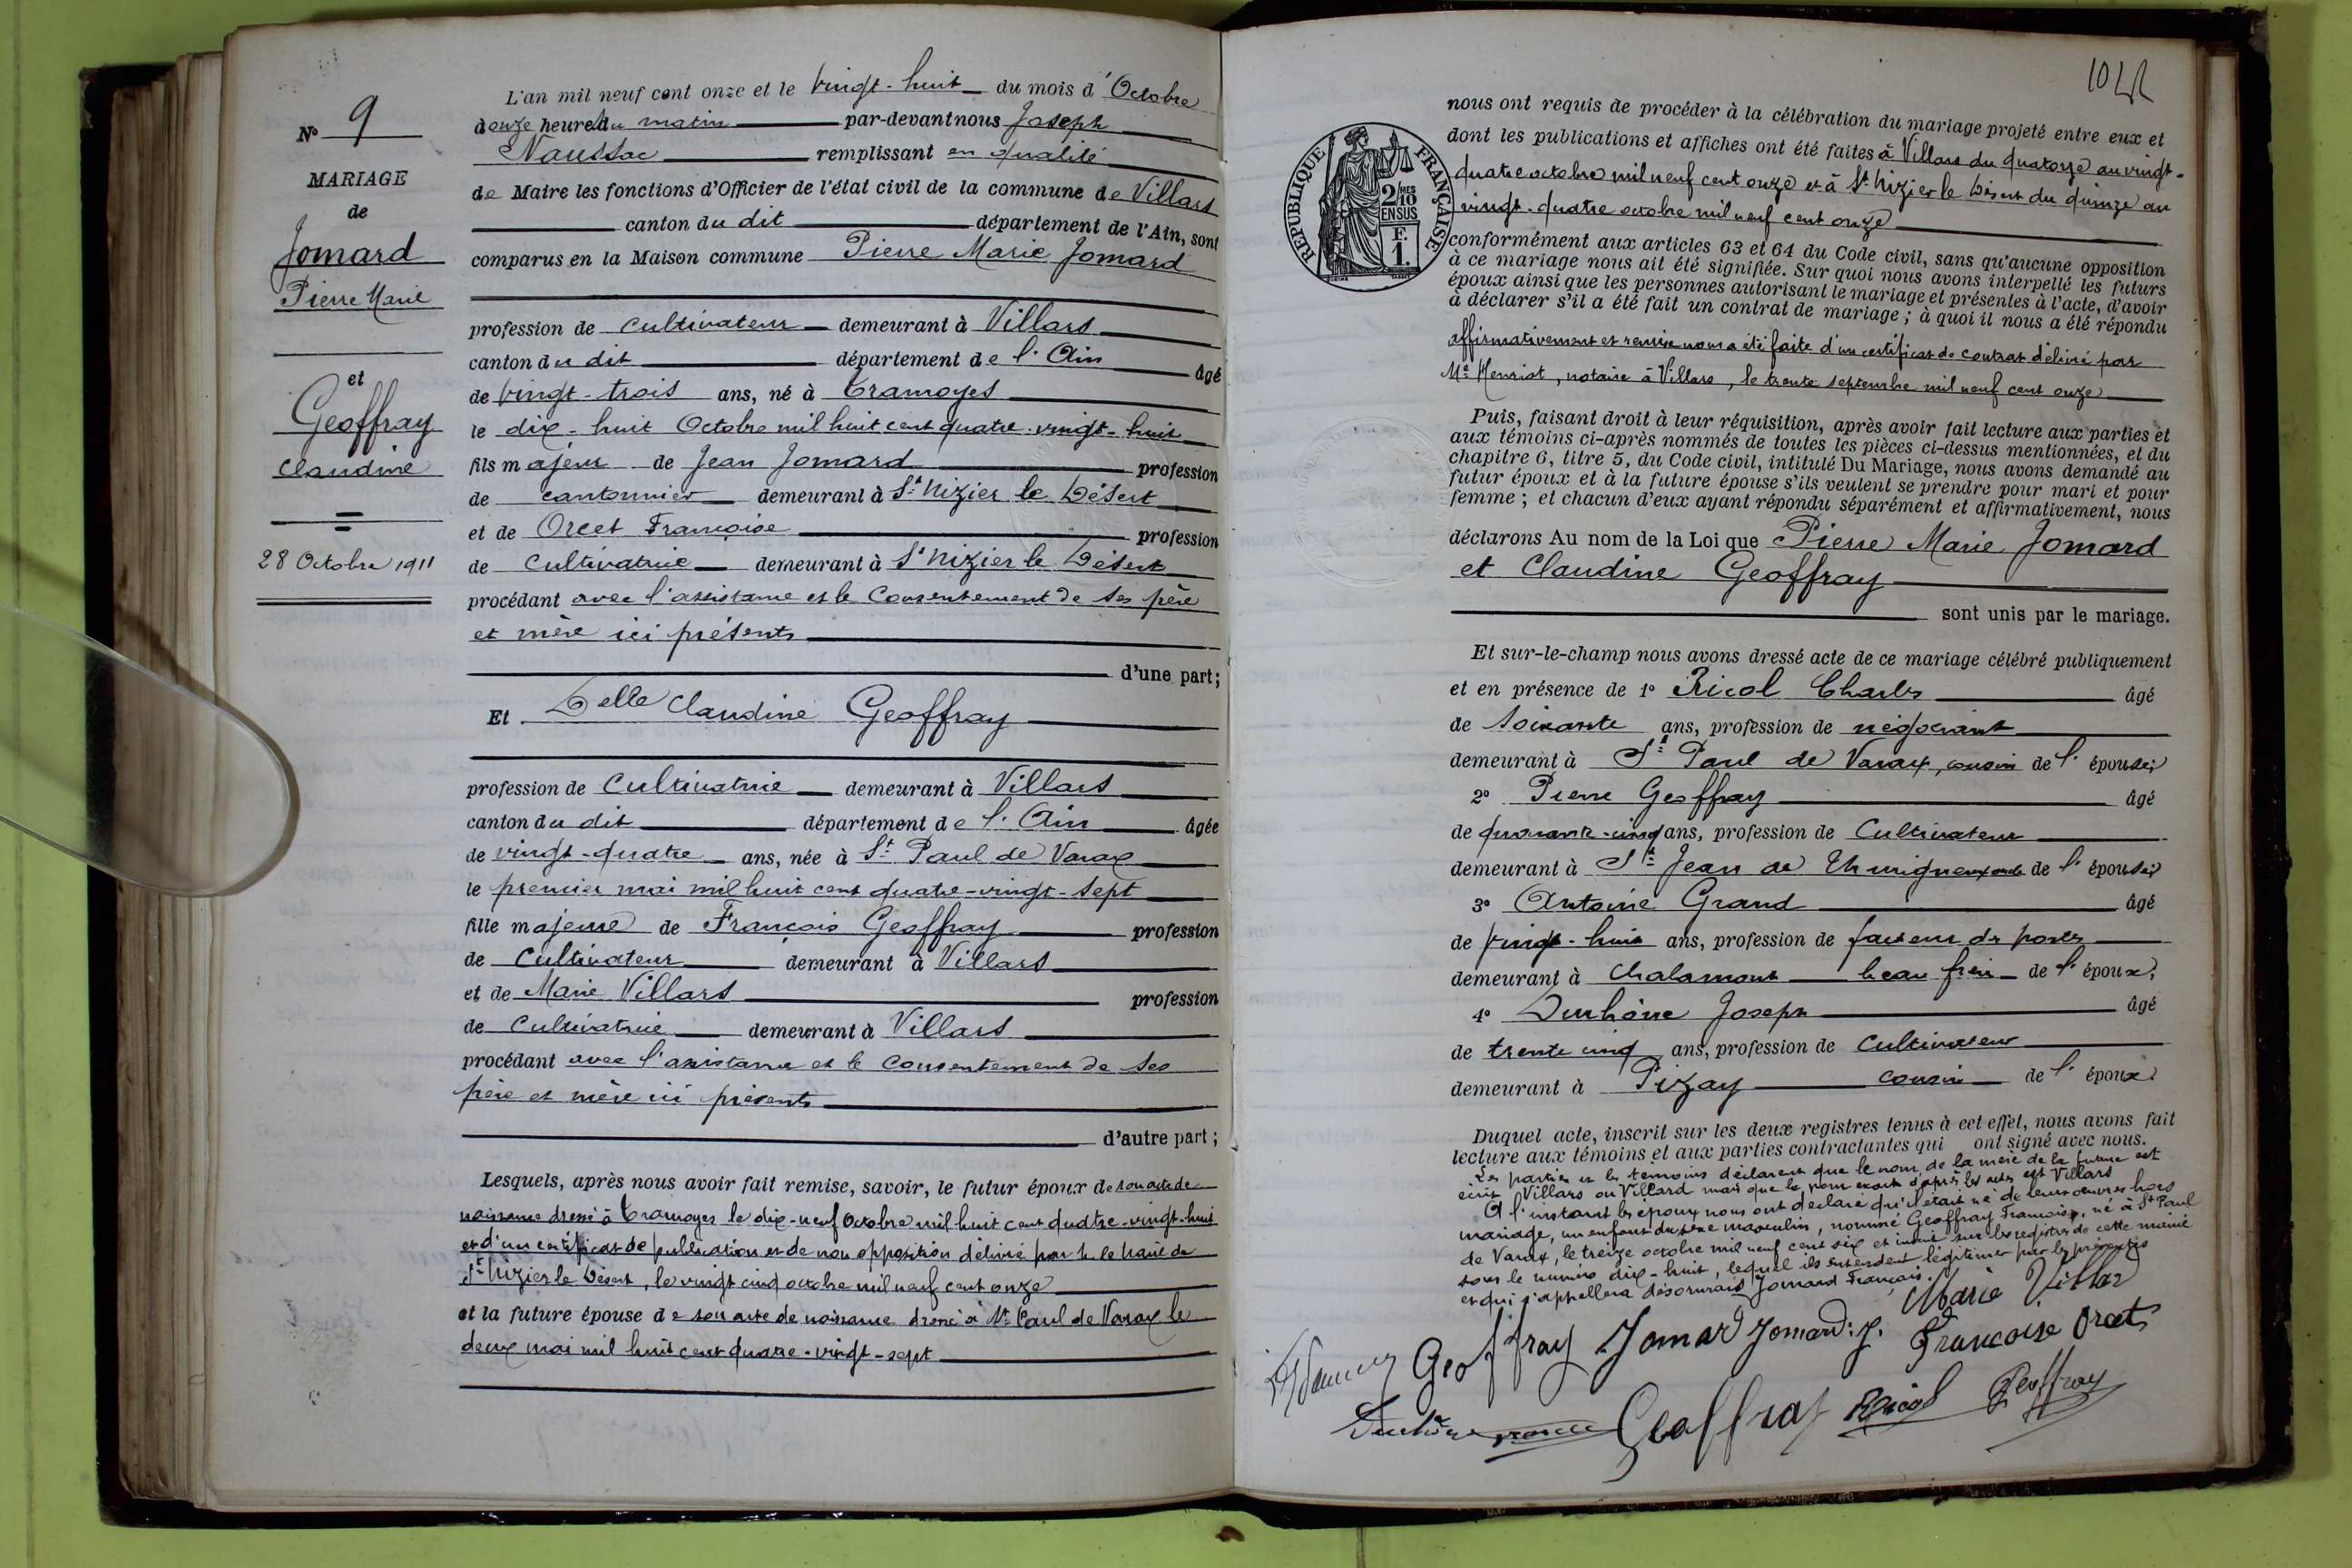 N° 9
MARIAGE
de
Jomard
Pierre Marie
et
Geoffray
Claudine
28 Octobre 1911
L'an mil neuf cent onze et le vingt-huit du mois d'Octobre
à onze heures du matin par-devant nous Joseph
Naussac remplissant en qualité
de Maire les fonctions d'Officier de l'état civil de la commune de Villars
canton du dit département de l'Ain, sont
comparus en la Maison commune Pierre Marie Jomard
profession de cultivateur demeurant à Villars
canton du dit département de l'Ain âgé
de vingt-trois ans, né à Tramoyes
le dix-huit Octobre mil huit cent quatre-vingt-huit
fils majeur de Jean Jomard profession
de cantonnier demeurant à St Nizier le Désert
et de Orcet Françoise profession
de Cultivatrice demeurant à St Nizier le Désert
procédant avec l'assistance et le Consentement de ses père
et mère ici présents
d'une part;
Et Delle Claudine Geoffray
profession de Cultivatrice demeurant à Villars
canton du dit département de l'Ain âgée
de vingt-quatre ans, née à St Paul de Varax
le premier mai mil huit cent quatre-vingt-sept
fille majeure de François Geoffray profession
de Cultivateur demeurant à Villars
et de Marie Villars profession
de Cultivatrice demeurant à Villars
procédant avec l'assistance et le Consentement de ses
père et mère ici présents
d'autre part;
Lesquels, après nous avoir fait remise, savoir, le futur époux de son acte de
naissance dressé à Tramoyes le dix-neuf Octobre mil huit cent quatre-vingt-huit
et d'un certificat de publication et de non opposition délivré par M. le Maire de
St Nizier le Désert, le vingt cinq octobre mil neuf cent onze
et la future épouse de son acte de naissance dressé à St Paul de Varax le
deux mai mil huit cent quatre-vingt-sept
nous ont requis de procéder à la célébration du mariage projeté entre eux et
dont les publications et affiches ont été faites à Villars du quatorze au vingt-
quatre octobre mil neuf cent onze et à St Nizier le Désert du quinze au
vingt-quatre octobre mil neuf cent onze
RÉPUBLIQUE FRANÇAISE
2/10 MES
EN SUS
F.
1.
conformément aux articles 63 et 64 du Code civil, sans qu'aucune opposition
à ce mariage nous ait été signifiée. Sur quoi nous avons interpellé les futurs
époux ainsi que les personnes autorisant le mariage et présentes à l'acte, d'avoir
à déclarer s'il a été fait un contrat de mariage; à quoi il nous a été répondu
affirmativement et remise nous a été faite d'un certificat de contrat délivré par
Me Henriot, notaire à Villars, le trente septembre mil neuf cent onze
Puis, faisant droit à leur réquisition, après avoir fait lecture aux parties et
aux témoins ci-après nommés de toutes les pièces ci-dessus mentionnées, et du
chapitre 6, titre 5, du Code civil, intitulé Du Mariage, nous avons demandé au
futur époux et à la future épouse s'ils veulent se prendre pour mari et pour
femme; et chacun d'eux ayant répondu séparément et affirmativement, nous
déclarons Au nom de la Loi que Pierre Marie Jomard
et Claudine Geoffray
sont unis par le mariage.
Et sur-le-champ nous avons dressé acte de ce mariage célébré publiquement
et en présence de 1° Ricol Charles âgé
de soixante ans, profession de négociant
demeurant à St Paul de Varax, cousin de l'épouse;
2° Pierre Geoffray âgé
de quarante-cinq ans, profession de Cultivateur
demeurant à St Jean de Thurigneux oncle de l'épouse;
3° Antoine Grand âgé
de vingt-huit ans, profession de facteur des postes
demeurant à Chalamont beau frère de l'époux;
4° Duchêne Joseph âgé
de trente cinq ans, profession de Cultivateur
demeurant à Pizay cousin de l'époux.
Duquel acte, inscrit sur les deux registres tenus à cet effet, nous avons fait
lecture aux témoins et aux parties contractantes qui ont signé avec nous.
Les parties et les témoins déclarent que le nom de la mère de la future est
écrit Villars ou Villard mais que le nom exact d'après les actes est Villars
A l'instant les époux nous ont déclaré qu'il était né de leurs oeuvres hors
mariage, un enfant du sexe masculin, nommé Geoffray François, né à St Paul
de Varax, le treize octobre mil neuf cent six et inscrit sur les registres de cette mairie
sous le numéro dix-huit, lequel ils entendent légitimer par les présentes
et qui s'appellera désormais Jomard François.
Marie Villar
Geoffray Jomard Jomard: J. Francoise Orcet
Duchêne Geoffray Ricol Geoffray